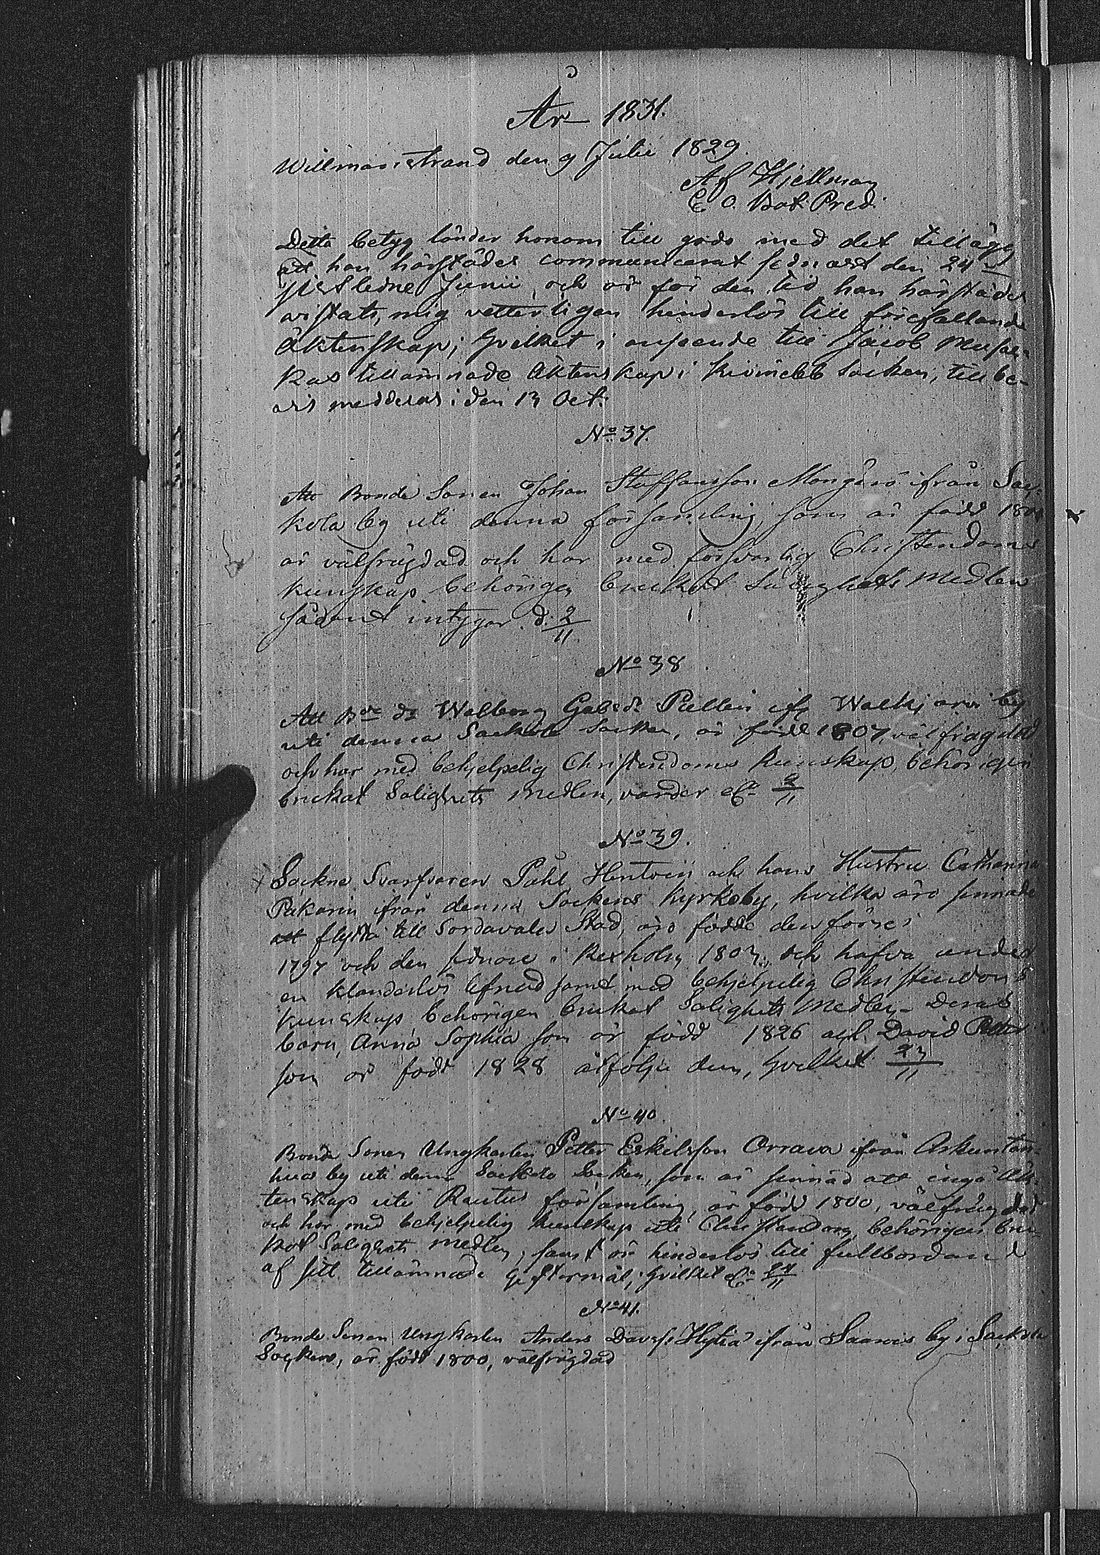 År 1831.
Willmanstrand den 9 Julii 1829.
Af Hjellman
E. O. Bat. Pred.
Detta betyg länder honom till godo med det tillägg
att han härstädes communicerat sednast den 24
sistledne Junii, och är för den tid han härstädes
vistats, mig vetterligen hinderlös till förefallande
Äktenskap; hvilket i anseende till Jacob
kas tillämnade Äktenskap i Kivinebb Socken, till be-
vis meddelas; den 13 Oct.
No 37.
Att Bonde Sonen Johan Staffansson Mongäro ifrån Sac-
kola by uti denna församling, som är född
är välfrägdad och har med försvarlig Christendoms
kunskap behörigen brukat Salighets Medlen
sådant intygar d. 2/11
No 38
Att Bde dr Walborg Gabrsdr Pellin ifr Walkjarvi by
uti denna Sackola Socken, är född 1807, välfrägdad
och har med behjelpelig Christendoms kunskap, behörigen
brukat Salighets medlen, varder 2/11
No 39.
Sockne Svarfvaren Påhl Hentoin och hans Hustru Catharina
Pukarin ifrån denna Sockens Kyrkoby, hvilka äro sinnade
att flytta till Sordavala Stad, äro födde den förre i
1797 och den sednare i Kexholm 1803, och hafva under
en klanderlös lefnad samt med behjelpelig Christendoms
kunskap behörigen brukat Salighets Medlen. Deras
barn, Anna Sophia som är född 1826 och David Petter
som är född 1828 åtfölja dem, hvilket 23/11
No 40.
Bonde Sonen Ungkarlen Petter Eskelsson Orrava ifrån
by uti denna Sackola Socken, som är sinnad att ingå Äk-
tenskap uti Rautus församling, är född 1800, välfrägdad
och har med behjelpelig kunskap uti Christendom, behörigen bru-
kat Salighets medlen, samt är hinderlös till fullbordand
af sitt tillämnade Giftermål; hvilket
No 41.
Bonde Sonen Ungkarlen Anders Davidss. Hytiä ifrån Saarois by i Sackola
Socken, är född 1800, välfrägdad